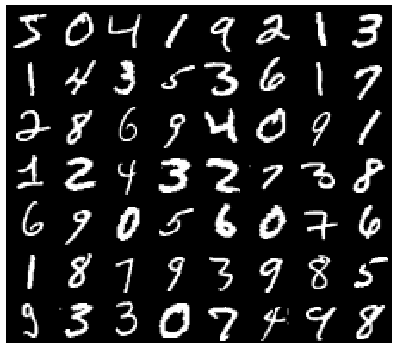 5 0 4 1 9 2 1 3
1 4 3 5 3 6 1 7
2 8 6 9 4 0 9 1
1 2 4 3 2 7 3 8
6 9 0 5 6 0 7 6
1 8 7 9 3 9 8 5
9 3 3 0 7 4 9 8